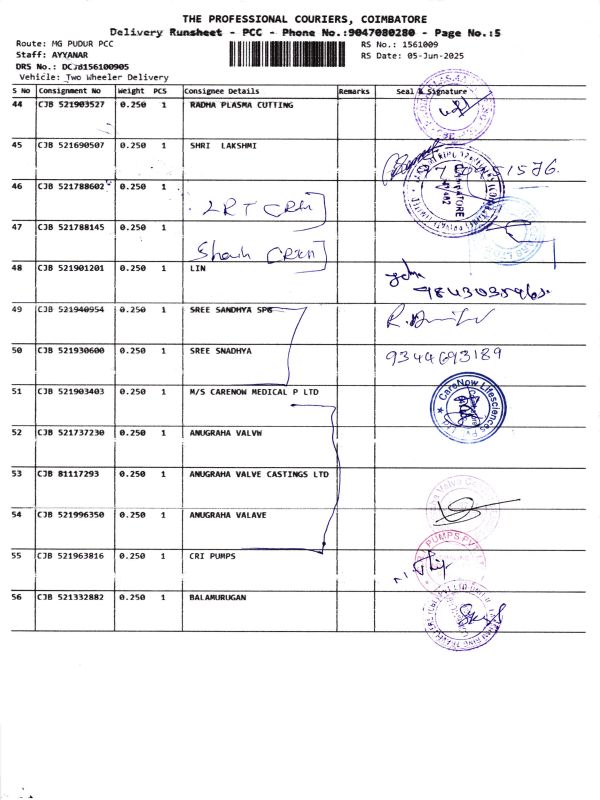 THE PROFESSIONAL COURIERS, COIMBATORE
Delivery Runsheet - PCC - Phone No.:9047080280 - Page No.:5
Route: MG PUDUR PCC
RS No.: 1561009
Staff: AYYANAR
RS Date: 05-Jun-2025
DRS No.: DCJB156100905
Vehicle: Two Wheeler Delivery
S No Consignment No Weight PCS Consignee Details Remarks Seal & Signature
44 CJB 521903527 0.250 1 RADHA PLASMA CUTTING
45 CJB 521690507 0.250 1 SHRI LAKSHMI
46 CJB 521788602 0.250 1
47 CJB 521788145 0.250 1
48 CJB 521901201 0.250 1 LIN
49 CJB 521940954 0.250 1 SREE SANDHYA SPG
50 CJB 521930600 0.250 1 SREE SNADHYA 9344693189
51 CJB 521903403 0.250 1 M/S CARENOW MEDICAL P LTD
CareNow Lifesciences
52 CJB 521737230 0.250 1 ANUGRAHA VALVW
53 CJB 81117293 0.250 1 ANUGRAHA VALVE CASTINGS LTD
54 CJB 521996350 0.250 1 ANUGRAHA VALAVE
55 CJB 521963816 0.250 1 CRI PUMPS
56 CJB 521332882 0.250 1 BALAMURUGAN